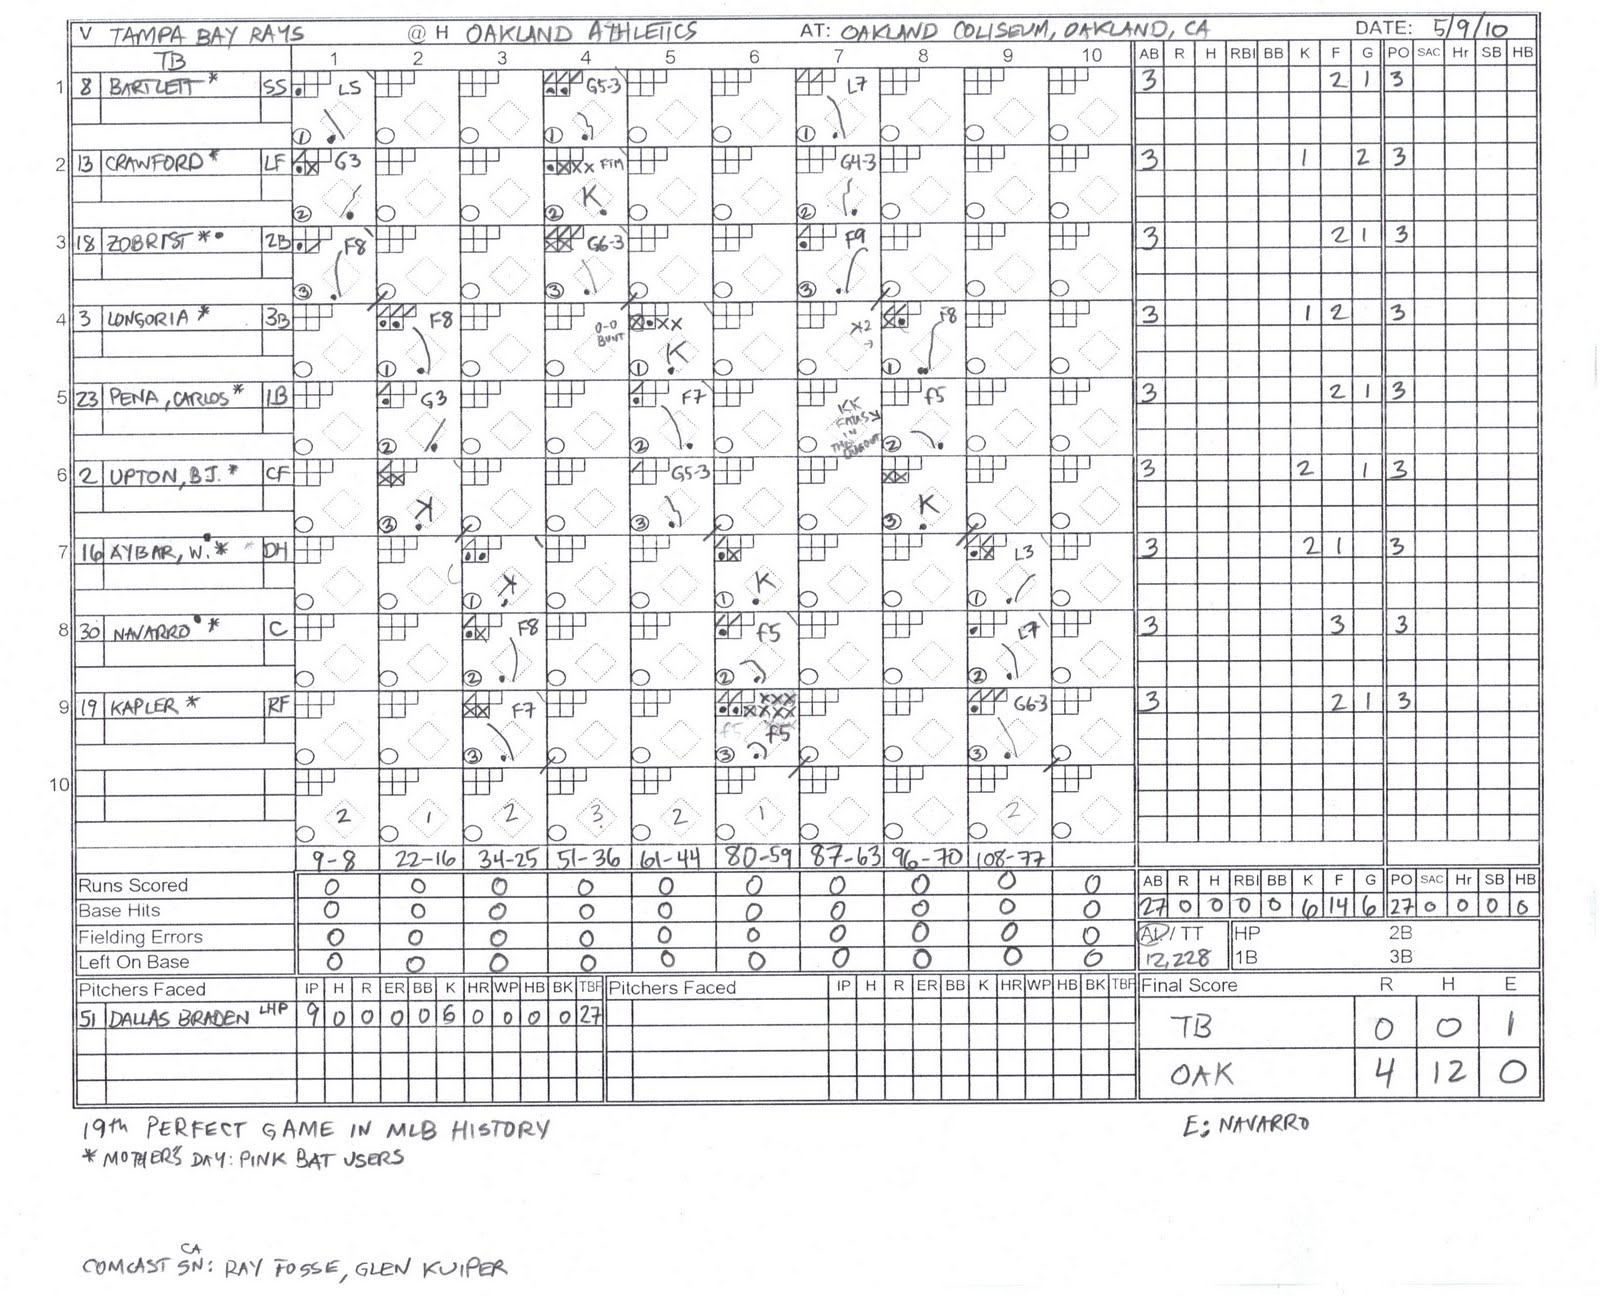 V TAMPA BAY RAYS @ H OAKLAND ATHLETICS AT: OAKLAND COLISEUM, OAKLAND, CA DATE: 5/9/10
TB 1 2 3 4 5 6 7 8 9 10 AB R H RBI BB K F G PO SAC Hr SB HB
1 8 BARTLETT * SS L5 G5-3 L7 3 2 1 3
① ① ①
2 13 CRAWFORD * LF G3 XX FTM G4-3 3 1 2 3
② ② K ②
3 18 ZOBRIST *• 2B F8 G6-3 F9 3 2 1 3
③ ③ ③
4 3 LONGORIA * 3B F8 0-0 BUNT XX K2 F8 3 1 2 3
① ① K ①
5 23 PENA, CARLOS * 1B G3 F7 KK IN THE DUGOUT f5 3 2 1 3
② ② ②
6 2 UPTON, B.J. * CF G5-3 3 2 1 3
③ K ③ ③ K
7 16 AYBAR, W. * DH L3 3 2 1 3
① K ① K ①
8 30 NAVARRO • * C F8 f5 L7 3 3 3
② ② ②
9 19 KAPLER * RF F7 XXX XXXX f5 G6-3 3 2 1 3
③ ③ ③
10 2 1 2 3 2 1 2
9-8 22-16 34-25 51-36 61-44 80-59 87-63 96-70 108-77
Runs Scored 0 0 0 0 0 0 0 0 0 0 AB R H RBI BB K F G PO SAC Hr SB HB
Base Hits 0 0 0 0 0 0 0 0 0 0 27 0 0 0 0 6 14 6 27 0 0 0 0
Fielding Errors 0 0 0 0 0 0 0 0 0 0 AD / TT HP 2B
Left On Base 0 0 0 0 0 0 0 0 0 0 12,228 1B 3B
Pitchers Faced IP H R ER BB K HR WP HB BK TBF Pitchers Faced IP H R ER BB K HR WP HB BK TBF Final Score R H E
51 DALLAS BRADEN LHP 9 0 0 0 0 6 0 0 0 0 27 TB 0 0 1
OAK 4 12 0
19th PERFECT GAME IN MLB HISTORY E: NAVARRO
* MOTHER'S DAY: PINK BAT USERS
COMCAST SN CA: RAY FOSSE, GLEN KUIPER